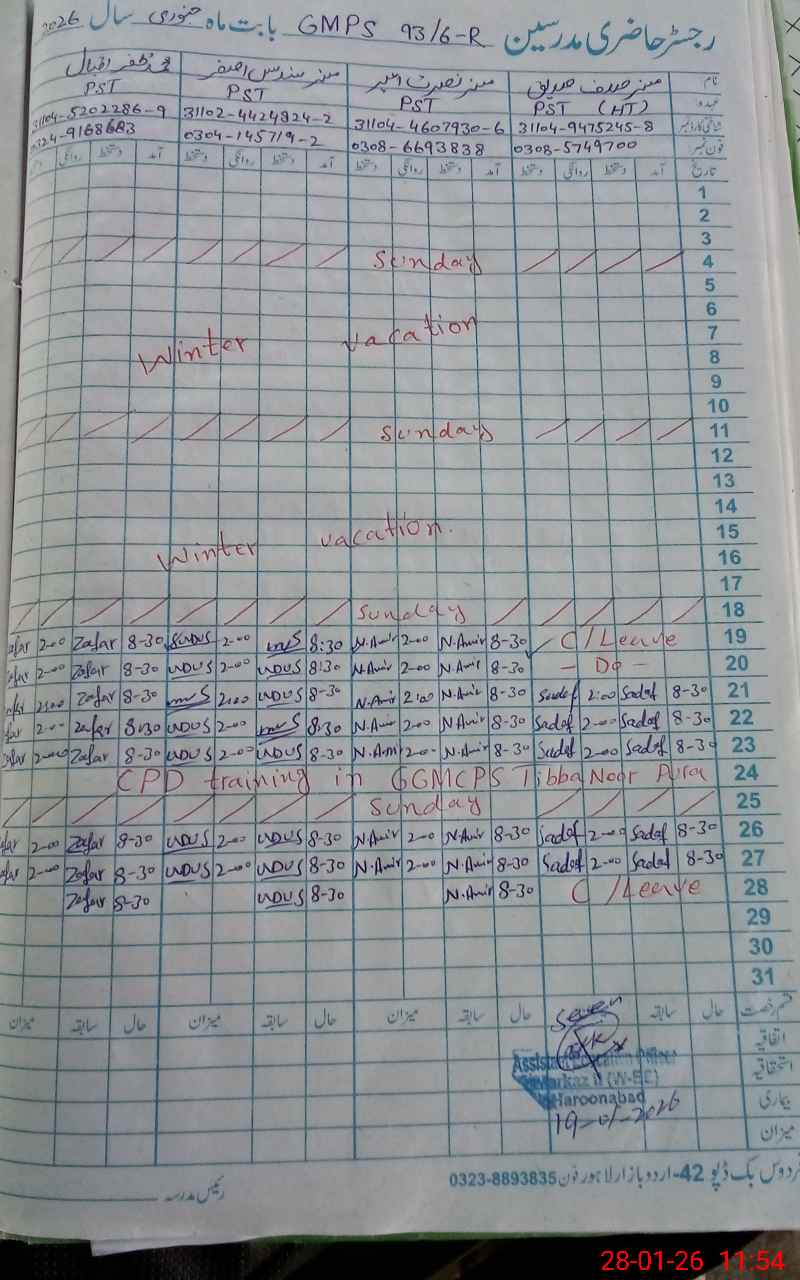 رجسٹر حاضری مدرسین GMPS 93/6-R بابت ماہ جنوری سال 2026
نام مسز صدف صدیق مسز نصرت امیر مسز سندس اصغر محمد ظفر اقبال
عہدہ PST (HT) PST PST PST
شناختی کارڈ نمبر 31104-9475245-8 31104-4607930-6 31102-4424824-2 31104-5202286-9
فون نمبر 0308-5749700 0308-6693838 0304-145719-2 0324-9168683
تاریخ آمد دستخط روانگی دستخط آمد دستخط روانگی دستخط آمد دستخط روانگی دستخط آمد دستخط روانگی
1
2
3
Sunday 4
5
6
Winter vacation 7
8
9
10
Sunday 11
12
13
14
Winter vacation. 15
16
17
Sunday 18
afar 2-00 Zafar 8-30 2-00 8:30 N.Amir 2-00 N.Amir 8-30 C/Leave 19
2-00 Zafar 8-30 2-00 8:30 N.Amir 2-00 N.Amir 8-30 - Do - 20
2:00 Zafar 8-30 2:00 8-30 N.Amir 2:00 N.Amir 8-30 Sadaf 2:00 Sadaf 8-30 21
2-00 Zafar 8:30 2-00 8:30 N.Amir 2-00 N.Amir 8-30 Sadaf 2-00 Sadaf 8-30 22
Zafar 8-30 2-00 8-30 2-00 N.Amir 8-30 Sadaf 2-00 Sadaf 8-30 23
CPD training in GGMCPS Tibba Noor Pura 24
Sunday 25
afar 2-00 Zafar 8-30 2-00 8-30 N.Amir 2-00 N.Amir 8-30 Sadaf 2-00 Sadaf 8-30 26
afar 2-00 Zafar 8-30 2-00 8-30 N.Amir 2-00 N.Amir 8-30 Sadaf 2-00 Sadaf 8-30 27
Zafar 8-30 8-30 N.Amir 8-30 C/Leave 28
29
30
31
قسم رخصت حال سابقہ حال سابقہ میزان حال سابقہ میزان حال سابقہ میزان
Seven
اتفاقیہ
استحقاقیہ
بیماری
میزان
Assistant Education Officer
Markaz II (W-EE)
Haroonabad
19-01-2026
فردوس بک ڈپو 42-اردو بازار لاہور فون 0323-8893835
رئیس مدرسہ
28-01-26 11:54